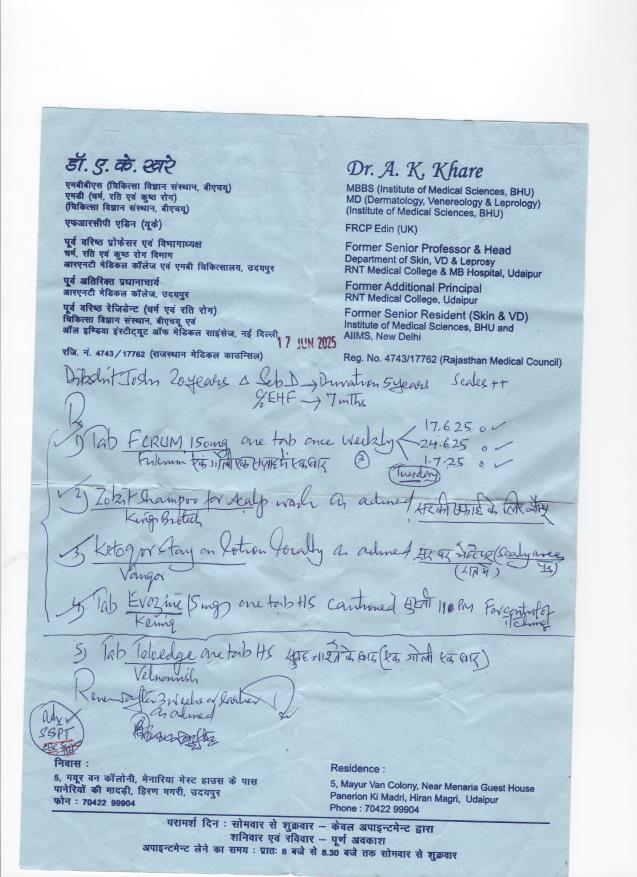 डॉ. ए. के. खरे
एमबीबीएस (चिकित्सा विज्ञान संस्थान, बीएचयू)
एमडी (चर्म, रति एवं कुष्ठ रोग)
(चिकित्सा विज्ञान संस्थान, बीएचयू)
एफआरसीपी एडिन (यूके)
पूर्व वरिष्ठ प्रोफेसर एवं विभागाध्यक्ष
चर्म, रति एवं कुष्ठ रोग विभाग
आरएनटी मेडिकल कॉलेज एवं एमबी चिकित्सालय, उदयपुर
पूर्व अतिरिक्त प्रधानाचार्य
आरएनटी मेडिकल कॉलेज, उदयपुर
पूर्व वरिष्ठ रेजिडेन्ट (चर्म एवं रति रोग)
चिकित्सा विज्ञान संस्थान, बीएचयू एवं
ऑल इण्डिया इंस्टीट्यूट ऑफ मेडिकल साइंसेज, नई दिल्ली
रजि. नं. 4743/17762 (राजस्थान मेडिकल काउन्सिल)
Dr. A. K. Khare
MBBS (Institute of Medical Sciences, BHU)
MD (Dermatology, Venereology & Leprology)
(Institute of Medical Sciences, BHU)
FRCP Edin (UK)
Former Senior Professor & Head
Department of Skin, VD & Leprosy
RNT Medical College & MB Hospital, Udaipur
Former Additional Principal
RNT Medical College, Udaipur
Former Senior Resident (Skin & VD)
Institute of Medical Sciences, BHU and
AIIMS, New Delhi
Reg. No. 4743/17762 (Rajasthan Medical Council)
17 JUN 2025
20years Δ Seb D → Duration 5years Scales ++
EHF → 7 mths
1) Tab 150mg one tab once weekly
एक गोली एक सप्ताह में एक बार
17.6.25
24.6.25
1.7.25
Tuesday
2) Shampoo for scalp wash as advised
3) or Stay on lotion locally as advised
4) Tab Evozine 5mg one tab HS For control of
itching
5) Tab one tab HS
after 3 weeks or earlier
as advised
adv
SGPT
निवास :
5, मयूर वन कॉलोनी, मेनारिया गेस्ट हाउस के पास
पानेरियों की मादड़ी, हिरण मगरी, उदयपुर
फोन : 70422 99904
Residence :
5, Mayur Van Colony, Near Menaria Guest House
Panerion Ki Madri, Hiran Magri, Udaipur
Phone : 70422 99904
परामर्श दिन : सोमवार से शुक्रवार – केवल अपाइन्टमेन्ट द्वारा
शनिवार एवं रविवार – पूर्ण अवकाश
अपाइन्टमेन्ट लेने का समय : प्रातः 8 बजे से 8.30 बजे तक सोमवार से शुक्रवार